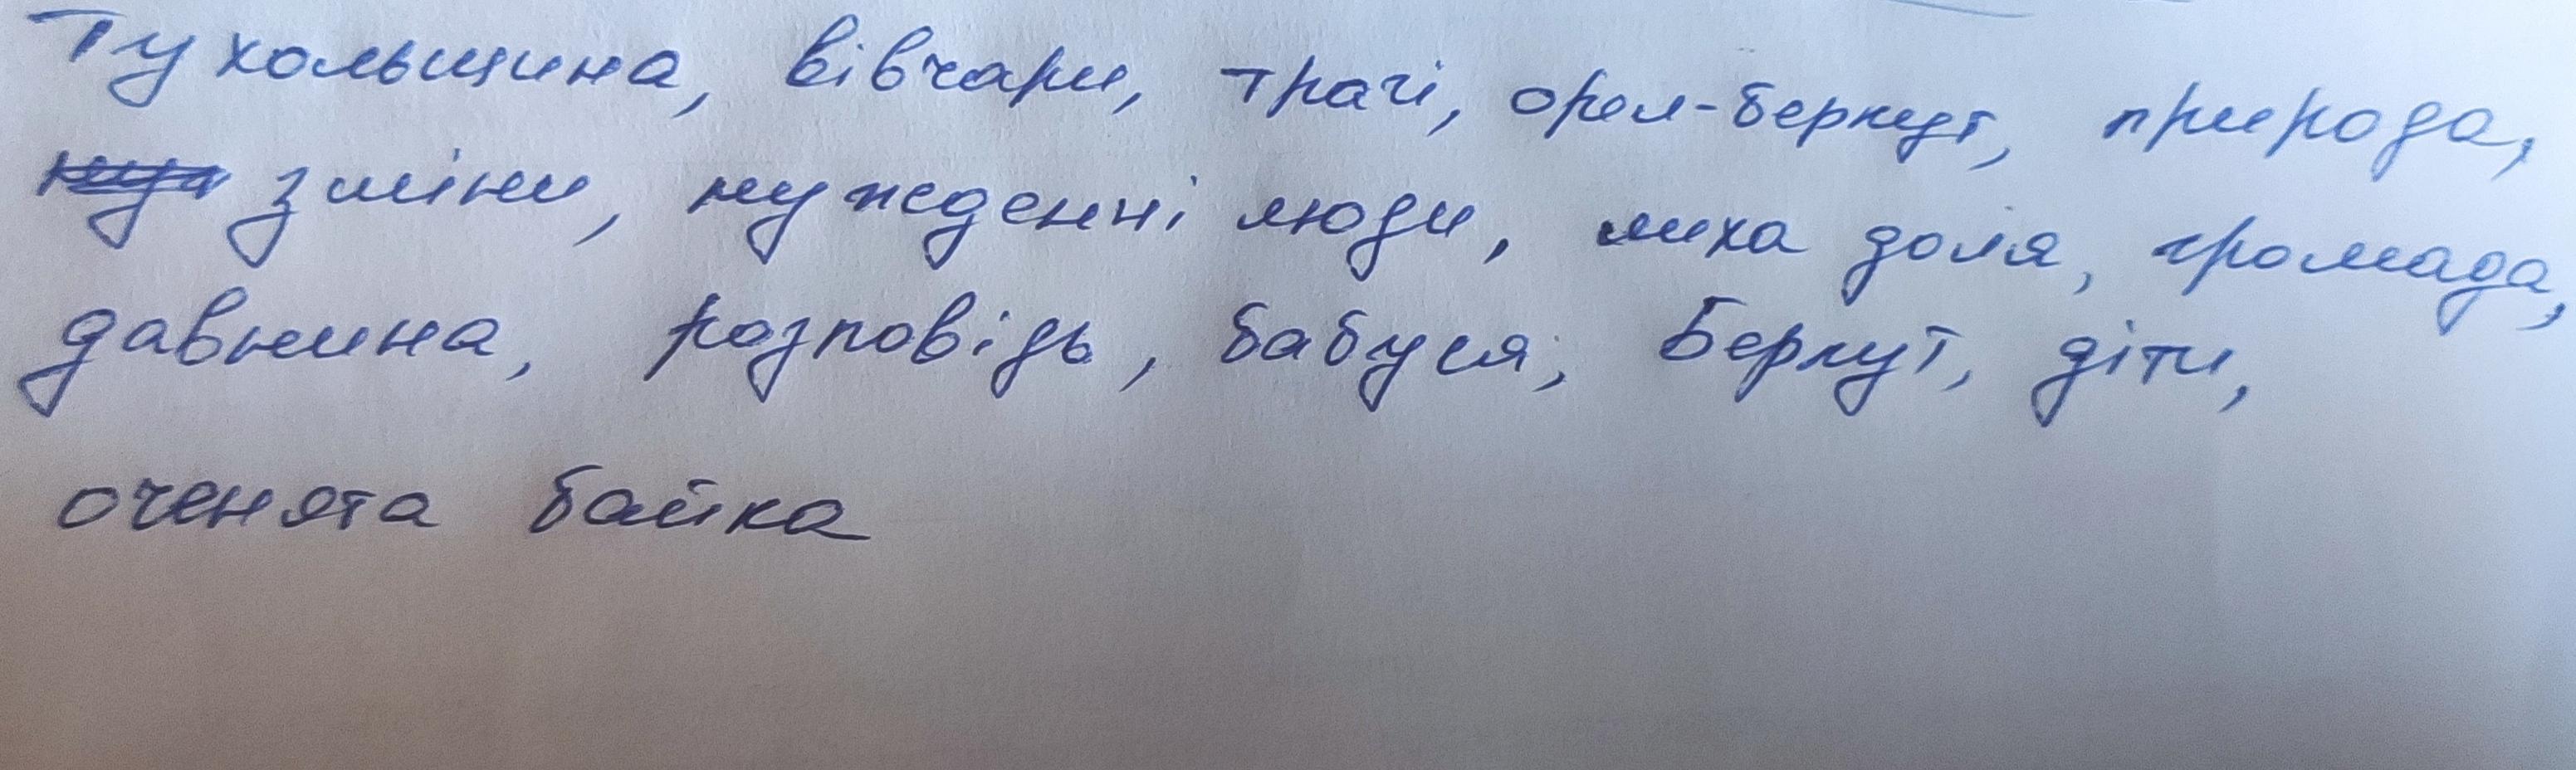 Тухольщина, вівчари, трачі, орел-беркут, природа,
зміни, нужденні люди, лиха доля, громада,
давнина, розповідь, бабуся, Беркут, діти,
оченята байка